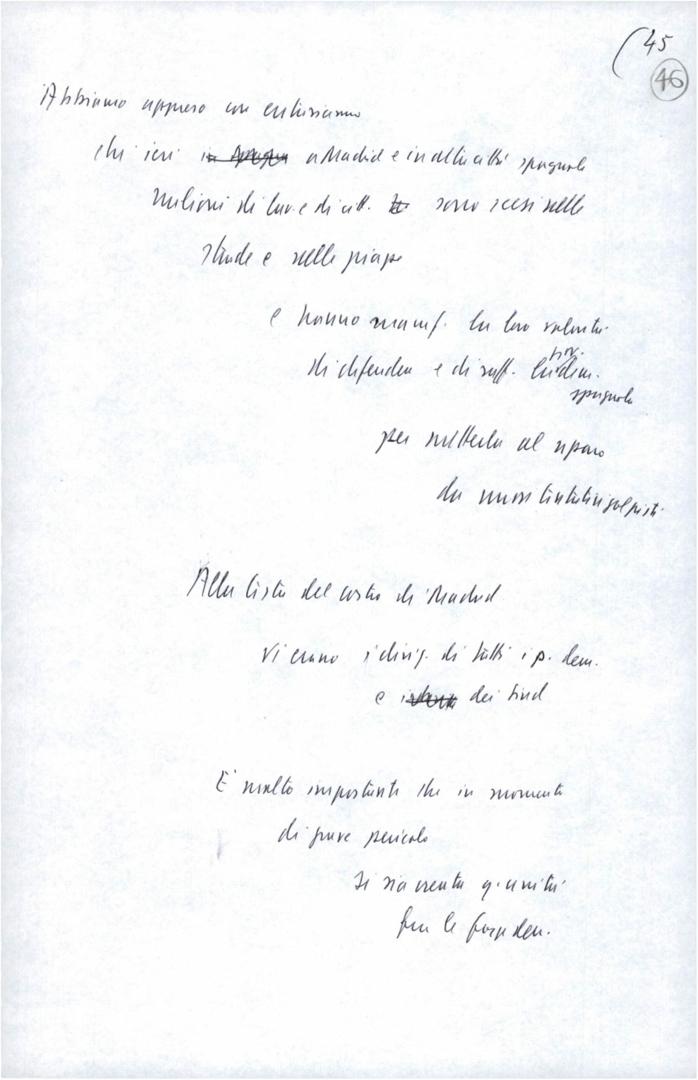 (45
46
Abbiamo appreso con entusiasmo
che ieri in Spagna a Madrid e in altre città spagnole
milioni di lav. e di citt. sono scesi nelle
strade e nelle piazze
e hanno manif. la loro volontà
di difendere e di raff. la dem.
spagnola
per metterla al riparo
da nuovi tentativi golpisti.
Alla testa del corteo di Madrid
vi erano i dirig. di tutti i p. dem.
e dei sind
E' molto importante che in momenti
di grave pericolo
si sia creata q. unità
fra le forze dem.